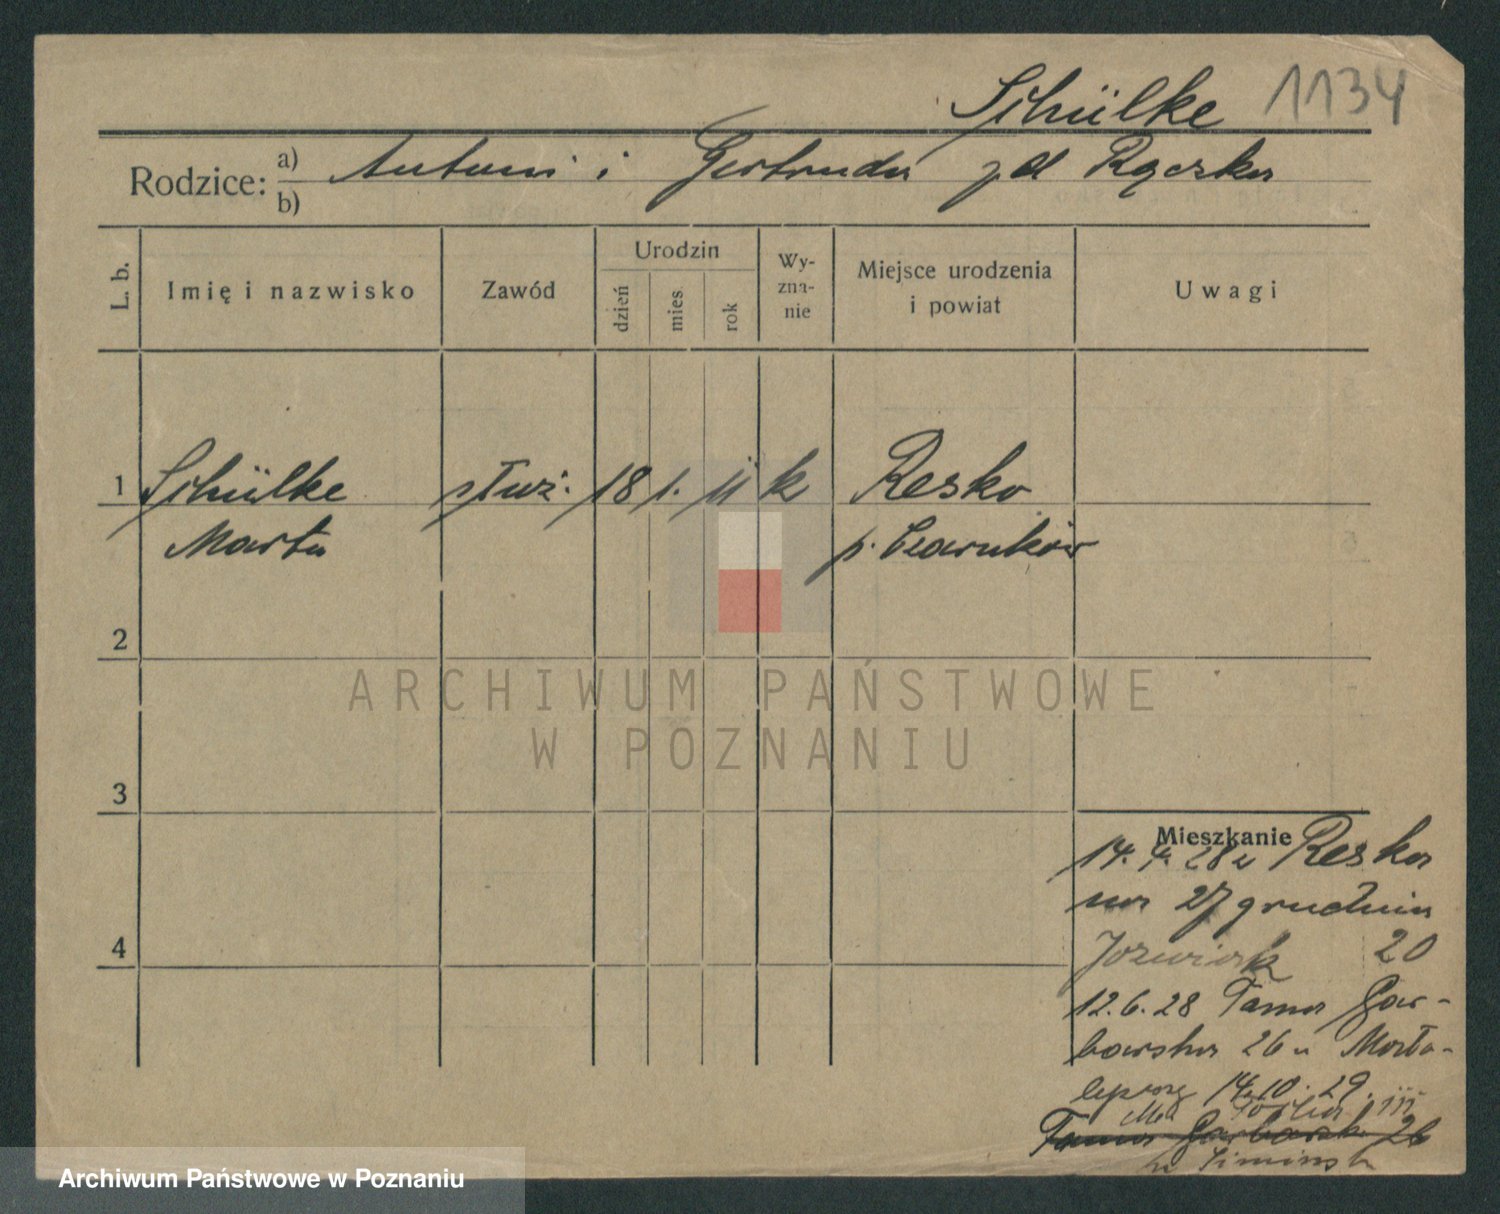 Schülke 1134
Rodzice: a) Antoni i Gertruda z d Rączka
b)
L. b.
Imię i nazwisko
Zawód
Urodzin
dzień
mies
rok
Wy-
zna-
nie
Miejsce urodzenia
i powiat
Uwagi
1 Schülke służ. 18 1. 11 k Resko
Marta p. Czarnków
2
3
4
Mieszkanie
14. 4. 28 z Reska
na 27 grudnia
Jozwiak 20
12.6.28 Tama Gar-
barska 26 u
14.10.29.
III
Tama Garbarsk. 26
ARCHIWUM PAŃSTWOWE
W POZNANIU
Archiwum Państwowe w Poznaniu